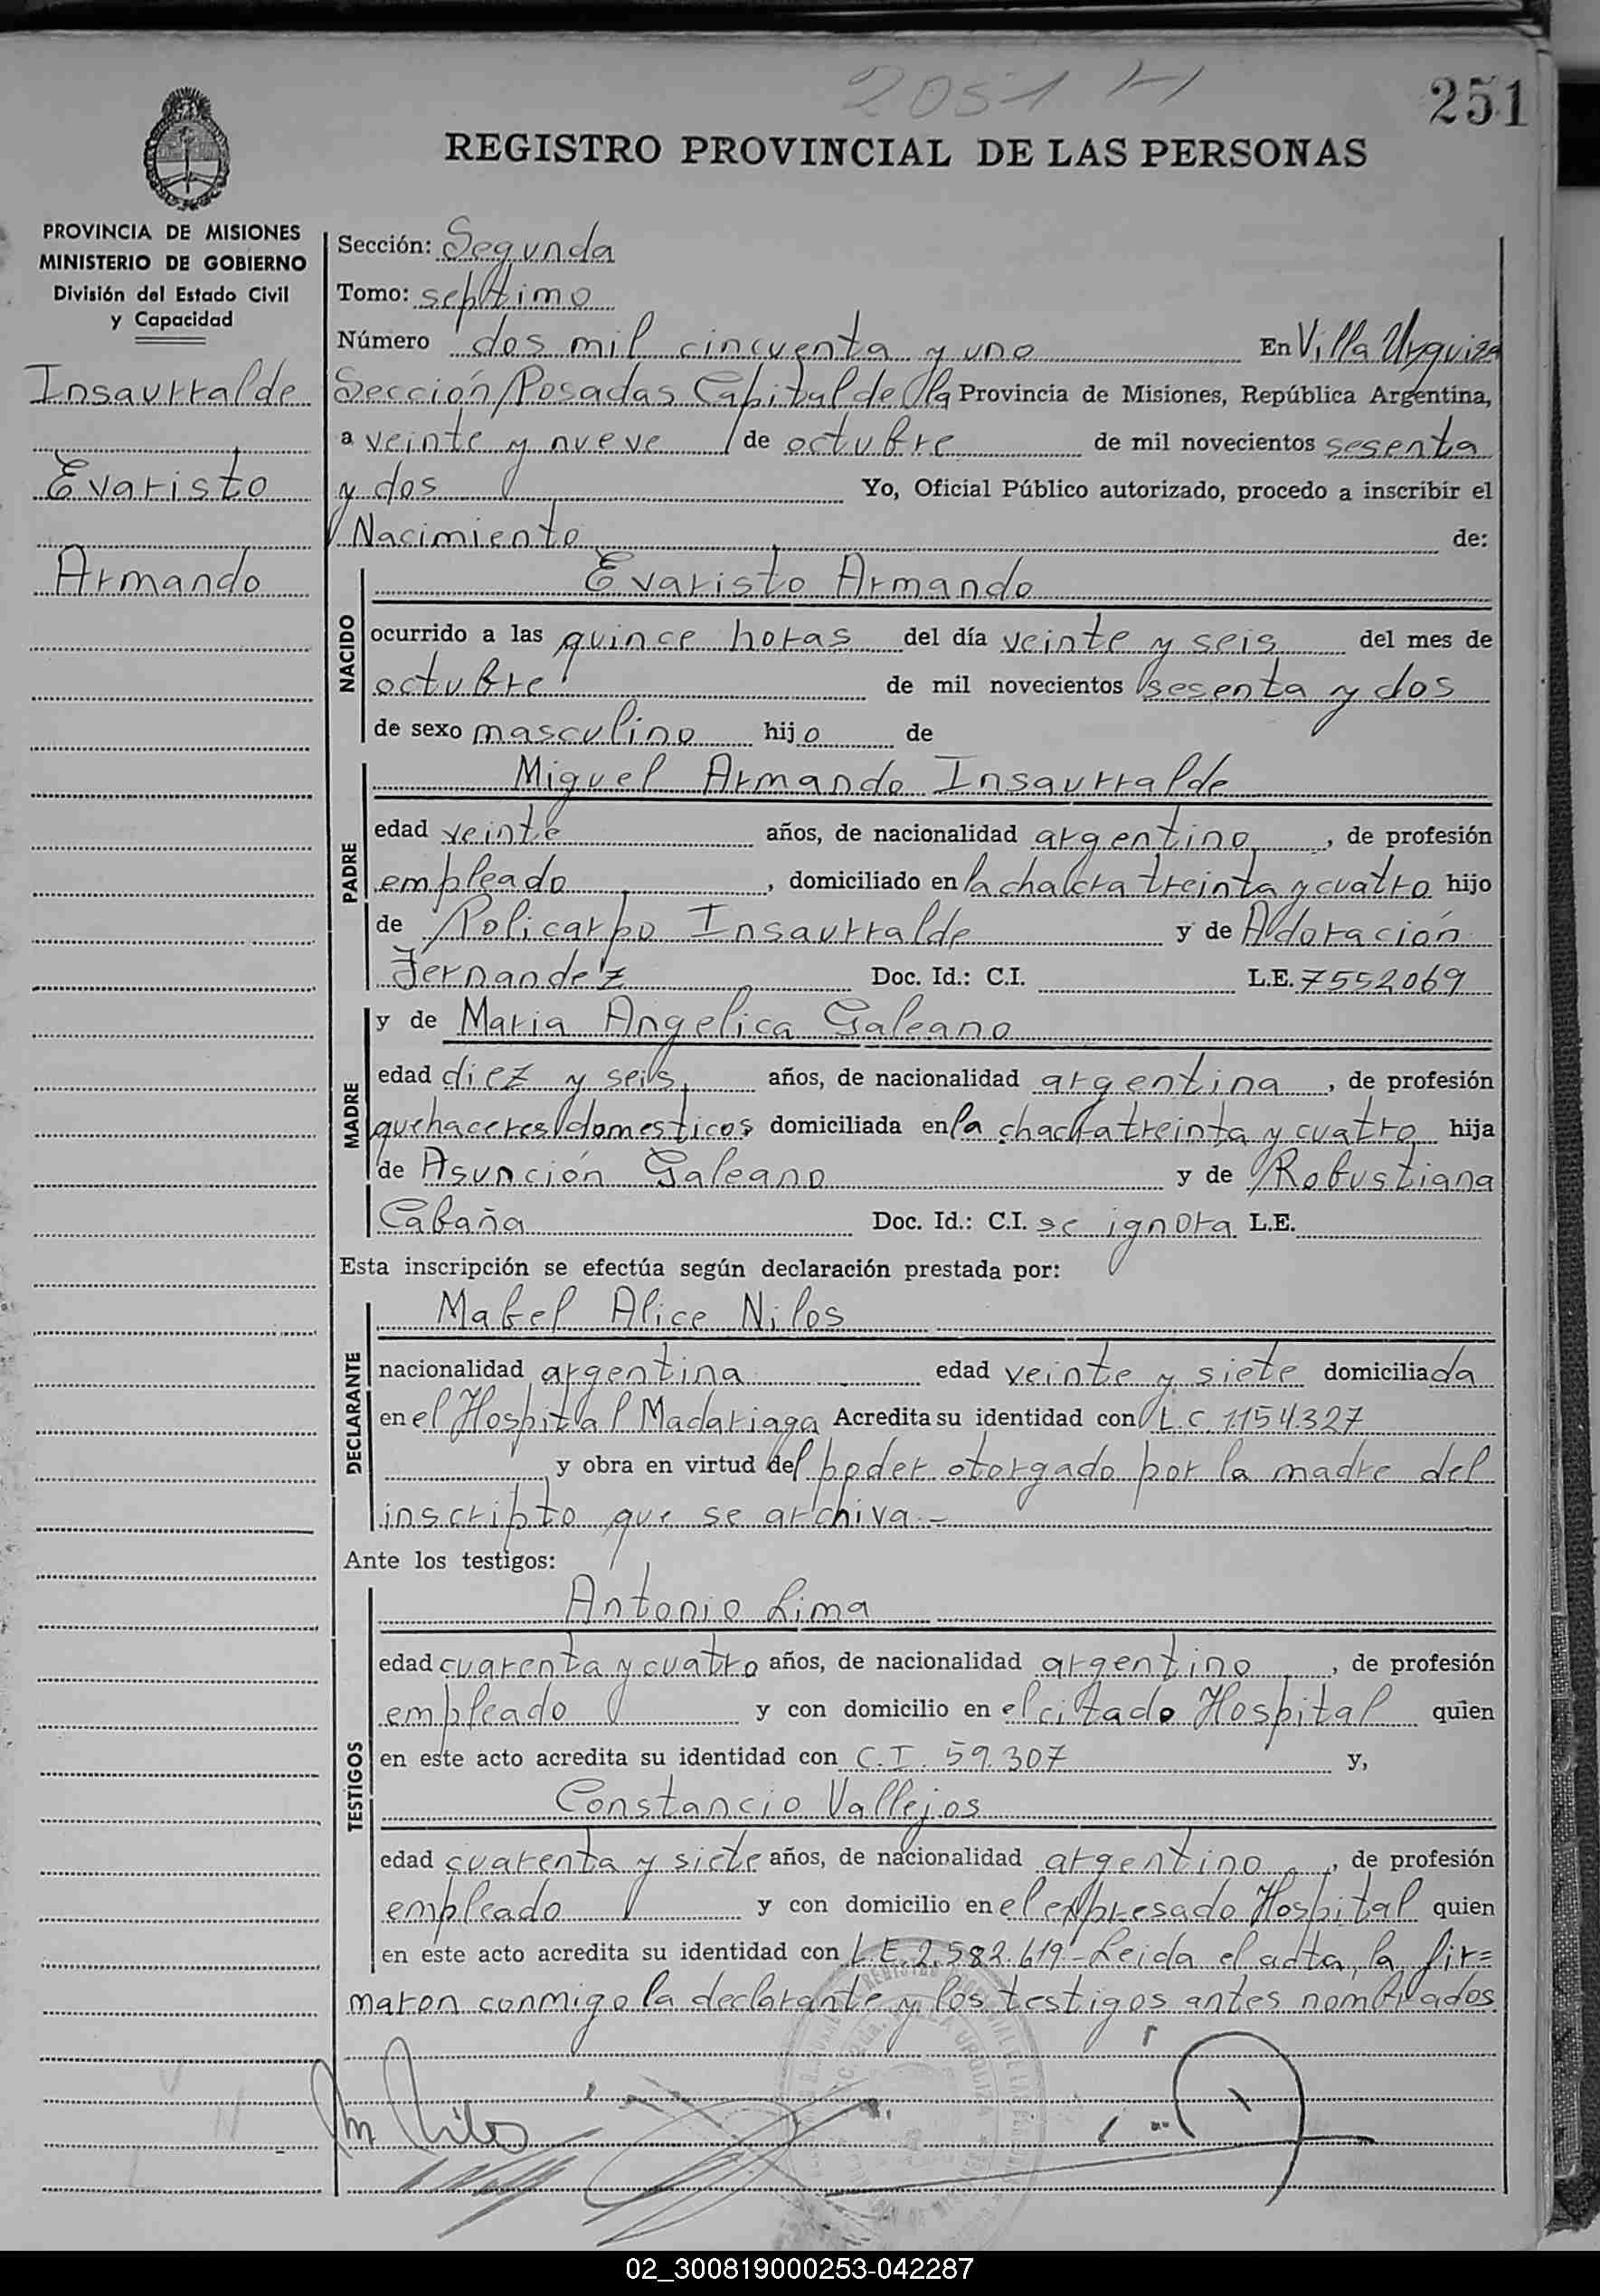 2051 H
251
REGISTRO PROVINCIAL DE LAS PERSONAS
PROVINCIA DE MISIONES
MINISTERIO DE GOBIERNO
División del Estado Civil
y Capacidad
Insaurralde
Evaristo
Armando
Sección: Segunda
Tomo: septimo
Número dos mil cincuenta y uno En Villa Urquiza
Sección Posadas Capital de la Provincia de Misiones, República Argentina,
a veinte y nueve de octubre de mil novecientos sesenta
y dos Yo, Oficial Público autorizado, procedo a inscribir el
Nacimiento de:
NACIDO
Evaristo Armando
ocurrido a las quince horas del día veinte y seis del mes de
octubre de mil novecientos sesenta y dos
de sexo masculino hijo de
PADRE
Miguel Armando Insaurralde
edad veinte años, de nacionalidad argentino, de profesión
empleado, domiciliado en la chacra treinta y cuatro hijo
de Policarpo Insaurralde y de Adoración
Fernandez Doc. Id.: C.I. L.E. 7552069
MADRE
y de Maria Angelica Galeano
edad diez y seis años, de nacionalidad argentina, de profesión
quehaceres domesticos domiciliada en la chacra treinta y cuatro hija
de Asunción Galeano y de Robustiana
Cabaña Doc. Id.: C.I. se ignora L.E.
Esta inscripción se efectúa según declaración prestada por:
DECLARANTE
Mabel Alice Nilos
nacionalidad argentina edad veinte y siete domiciliada
en el Hospital Madariaga Acredita su identidad con L.C. 1154.327
y obra en virtud del poder otorgado por la madre del
inscripto que se archiva.-
Ante los testigos:
TESTIGOS
Antonio Lima
edad cuarenta y cuatro años, de nacionalidad argentino, de profesión
empleado y con domicilio en el citado Hospital quien
en este acto acredita su identidad con C.I. 59.307 y,
Constancio Vallejos
edad cuarenta y siete años, de nacionalidad argentino, de profesión
empleado y con domicilio en el expresado Hospital quien
en este acto acredita su identidad con L.E. 2.582.619.- Leida el acta, la fir=
maron conmigo la declarante y los testigos antes nombrados.
M Nilos
02_300819000253-042287